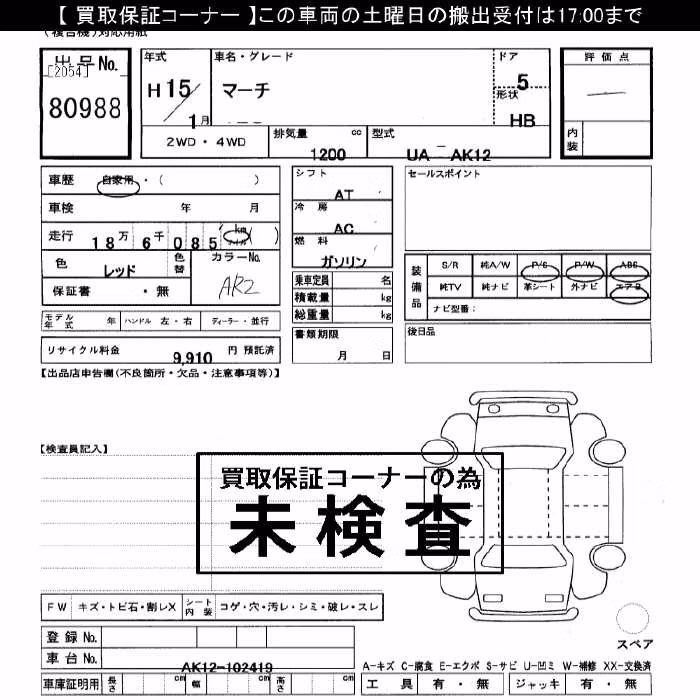 【 買取保証コーナー 】この車両の土曜日の搬出受付は17:00まで
(複合機)対応用紙
出品No.
[2054]
80988
年式
H 15/
1月
車名・グレード
マーチ
ドア
5
形状
HB
評価点
内装
2WD・4WD
排気量 cc
1200
型式
UA - AK12
車歴 自家用・( )
車検 年 月
走行 18万 6千 085 km
色 レッド
色替
カラーNo.
AR2
保証書 ・無
モデル年式 年
ハンドル 左・右
ディーラー・並行
リサイクル料金 9,910 円 預託済
シフト
AT
冷房
AC
燃料
ガソリン
乗車定員 名
積載量 kg
総重量 kg
書類期限
月 日
セールスポイント
装備品
S/R 純A/W P/S P/W ABS
純TV 純ナビ 革シート 外ナビ エアB
ナビ型番:
後日品
【出品店申告欄(不良箇所・欠品・注意事項等)】
【検査員記入】
買取保証コーナーの為
未検査
FW キズ・トビ石・割レX
シート内装 コゲ・穴・汚レ・シミ・破レ・スレ
登録No.
車台No.
AK12-102419
車庫証明用 長さ cm 幅 cm 高さ cm
スペア
A-キズ C-腐食 E-エクボ S-サビ U-凹ミ W-補修 XX-交換済
工具 有・無 ジャッキ 有・無